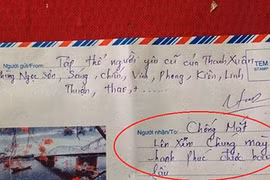 Người gửi/From: Tập thể người yêu cũ của Thanh Xuân
Ngọc Sơn, Sang, Chấn, Vinh, Phong, Kiên, Linh
Thuần, thao, ...
TEM
STAMP
Người nhận/To: Chồng Mặt
Lìn Xấm Chúng mày
hạnh phúc được bao
lâu